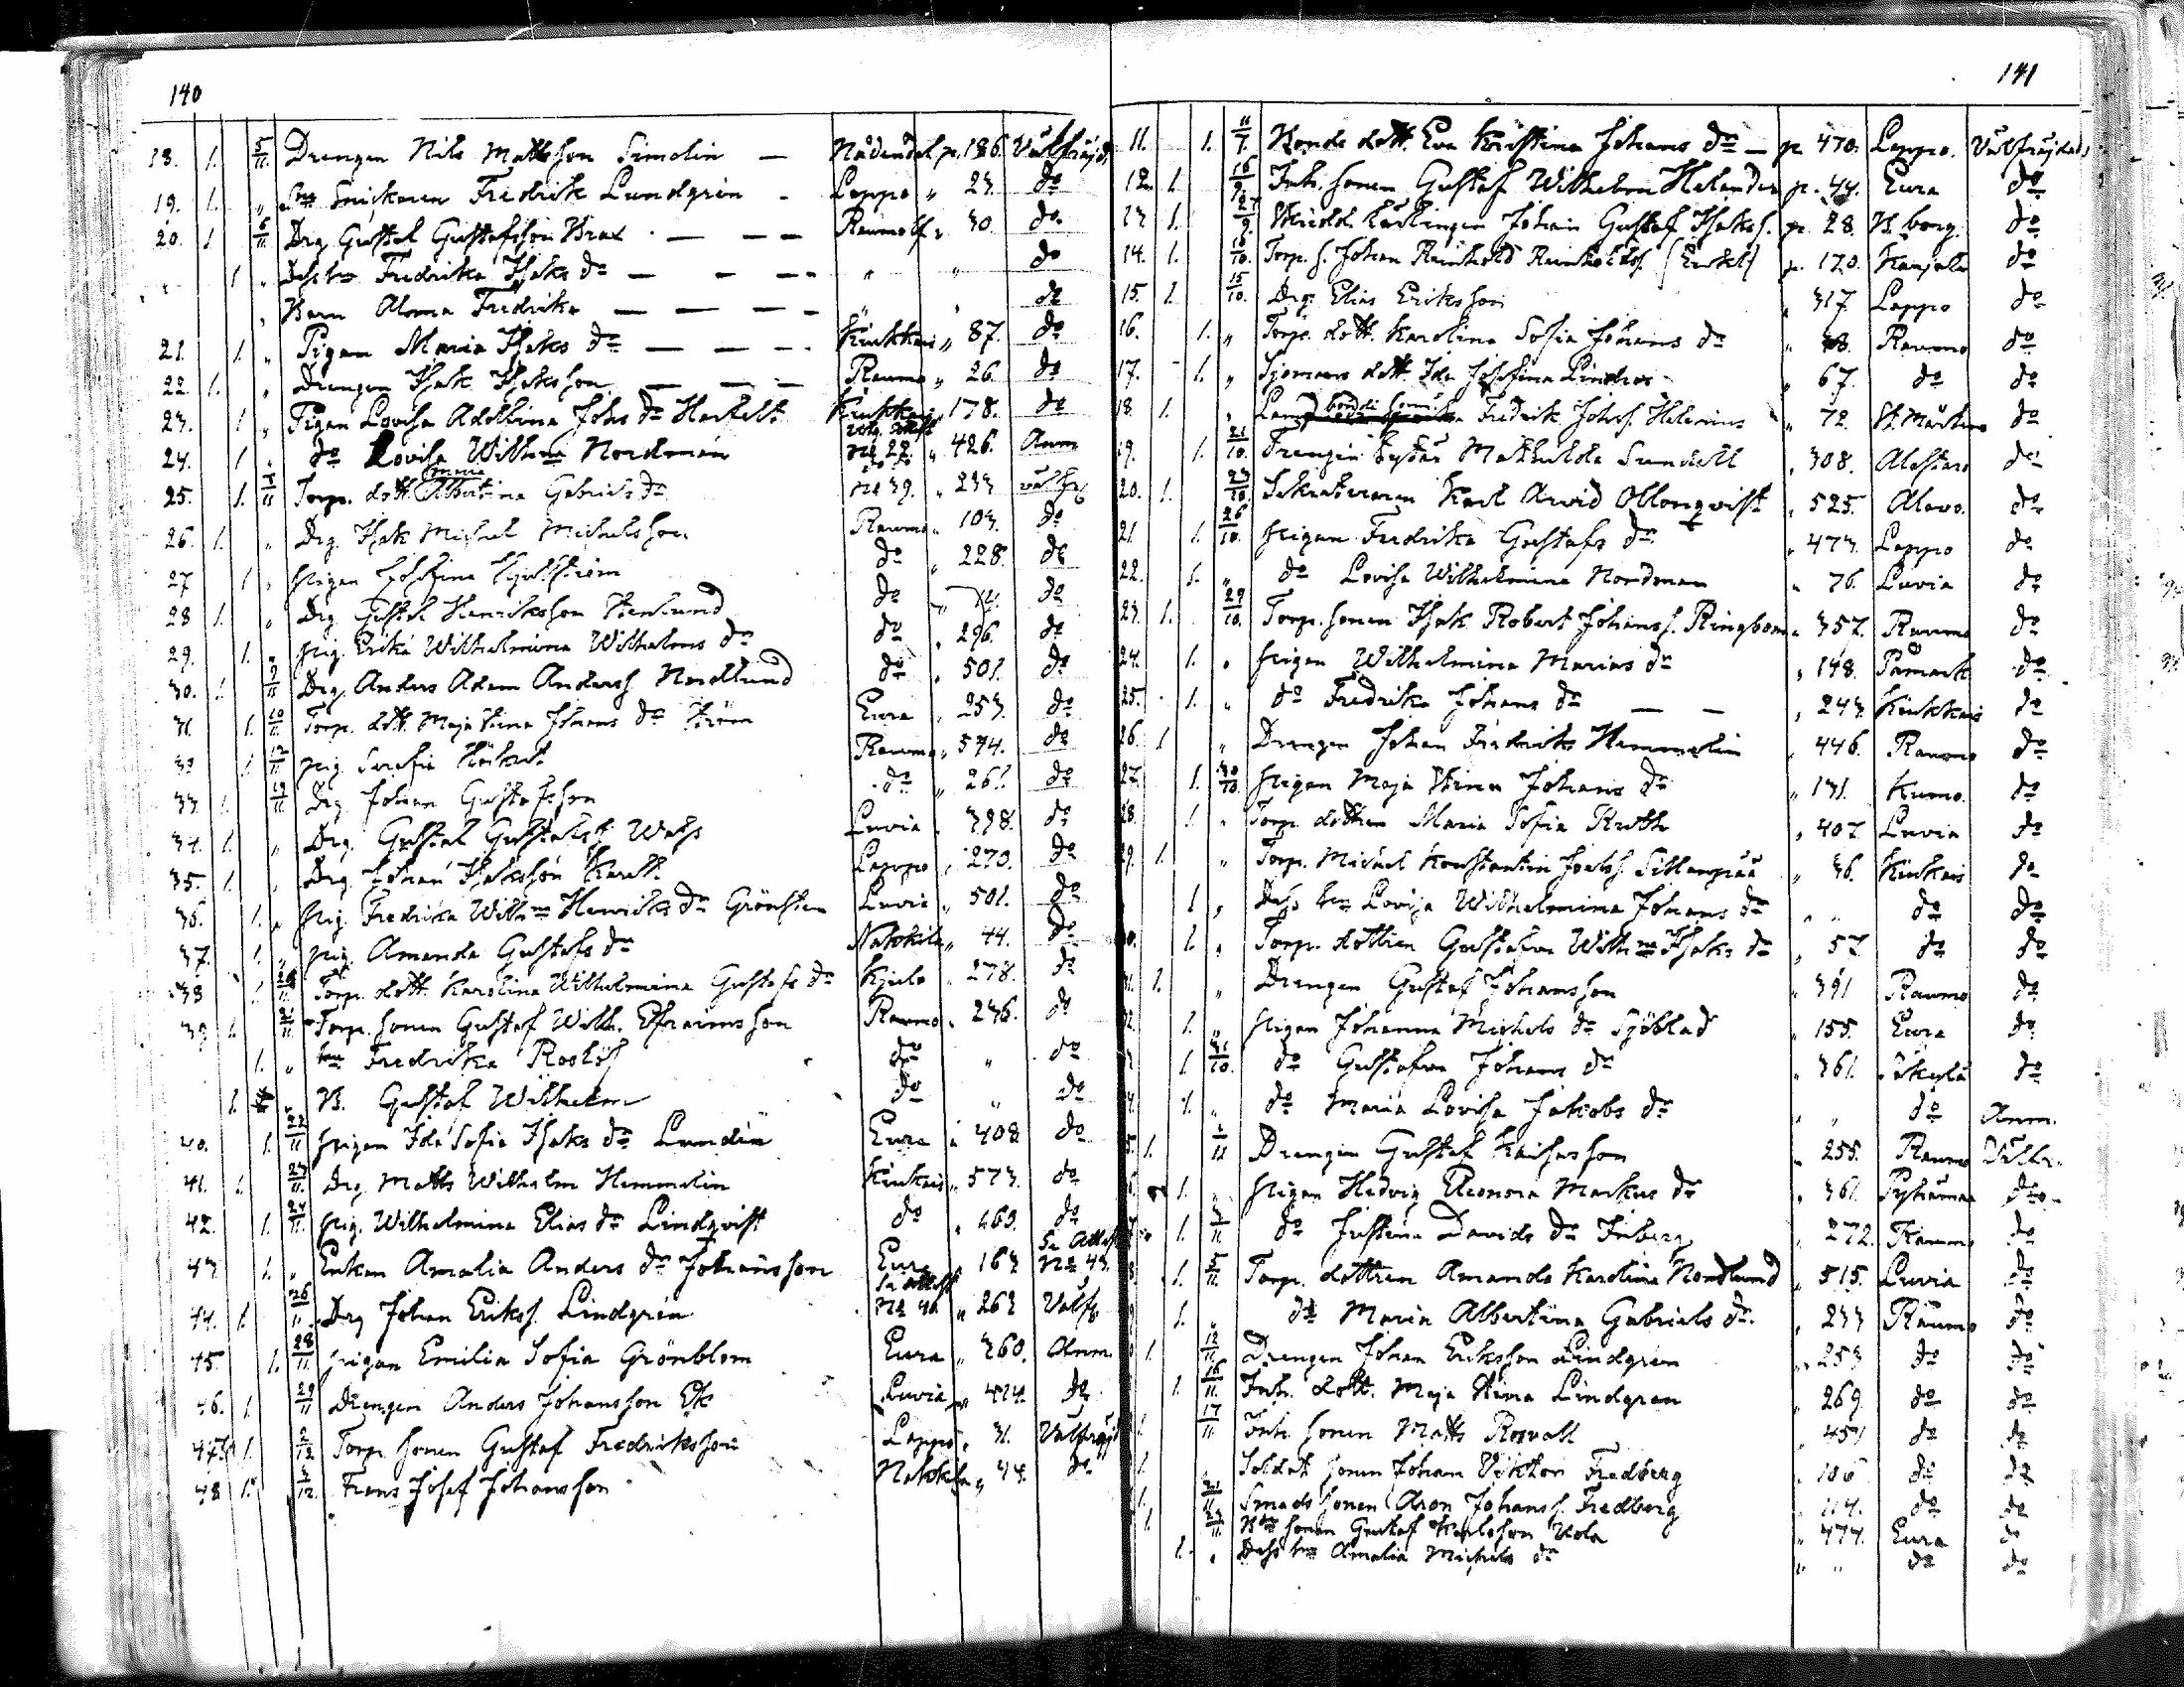 140
18. 1. 5/11 Drengen Nils Mattsson Simelin — Nådendal p. 186. Välfräjd.
19. 1. " Snickaren Fredrik Lundgrén - Lappo " 23. do
20. 1 6/11 Drg. Gustaf Gustafsson Brax - — — — Raumo " 30. do
1 " Dess hu Fredrika Isaks dr — — — " " do
" Barn Alma Fredrika — — — - " " do
21. 1. " Pigan Maria Isaks dr — — — - Kiukkais " 87. do
22. 1. " Drengen Isak Isaksson — — — Raumo " 26. do
23. 1 " Pigan Lovisa Adolfina Johs dr Kiukkais " 178. do
24. 1 " do Lovisa Wilhna Nordman No 22. " 426. Anm
25. 1. 8/11 Torp. dott. Maria Albertina Gabriels dr No 39. " 233 välfr.
26. 1. " Drg. Isak Mickel Mickelsson Raumo " 103. do
27 1 " Pigan Josefina do " 228. do
28 1. " Drg. Gustaf Henriksson Stenlund do " do
29. 1. " Pig. Erika Wilhelmina Wilhelms dr do " 296. do
30. 1. 9/11 Drg. Anders Adam Anderss. Nordlund do " 501. do
31. 1. 10/11 Torp. dott. Maja Stina Johans dr Ström Eura " 253. do
32 1. 12/11 Pig. Serafia Raumo " 574. do
33. 1. 19/11 Drg. Johan Gustafsson do " 261. do
34. 1. " Drg. Gustaf Gustafss. Luvia " 398. do
35. 1. " Drg. Johan Isaksson Lappo " 270. do
36. 1. " Pig. Fredrika Wilhna Henriks dr Grönsten Luvia " 501. do
37. 1. " Pig. Amanda Gustafs dr Nakkila " 44. do
38 1. 20/11 Torp. dott. Karolina Wilhelmina Gustafs dr Kjulo " 278. do
39. 1. 21/11 Torp. sonen Gustaf Wilh. Efraimsson Raumo " 236. do
1. " hu Fredrika Roslöf do " do
1. " B. Gustaf Wilhelm do " do
40. 1. 22/11 Pigan Ida Sofia Isaks dr Lundén Eura " 408 do
41. 1. 23/11 Drg. Matts Wilhelm Hemmelin Kiukais " 573. do
42. 1. 24/11 Pig. Wilhelmina Elias dr Lindqvist do " 460. do
43 1. " Enkan Amalia Anders dr Johansson Eura " 163 Se Attest No 43.
44. 1. 26/11 Drg Johan Erikss. Lindgrén Se attest No 46 " 262 Välfr.
45. 1. 28/11 Pigan Emilia Sofia Grönblom Eura " 360. Anm.
46. 1. 29/11 Drengen Anders Johansson Ek Luvia " 424. do
47. 1. 2/12 Torp. sonen Gustaf Fredriksson Lappo " 31. Välfräjd
48 1. 3/12. Frans Josef Johansson Nakkila " 44. do
141
11. 1. 11/7. Bonde dott. Eva Kristina Johans dr — p. 470. Lappo. Välfräjdad
12. 1. 16/9. Inh. sonen Gustaf Wilhelm Helander p. 44. Eura do
13 1. 27/9. Johan Gustaf Isakss. p. 28. B.borg. do
14. 1. 10/10. Torp. s. Johan Reinhold Reinholdss. (Enkl) p. 170. Karjala do
15. 1. 15/10. Drg. Elias Eriksson " 317. Lappo do
16. 1. " Torp. dott. Karolina Sofia Johans dr " Raumo do
17. 1. " Sjömans dott. Ida Josefina Lindros " 67. do do
18. 1. " Fredrik Johss. Helenius " 72. St. Mårtens do
19. 1. 21/10. Drengens Syster Mathilda Sundell " 308. Alastaro do
20. 1. 23/10. Sekreteraren Karl Arvid Ollonqvist " 525. Alavo. do
21. 1. 26/10. Pigan Fredrika Gustafs dr " 473. Lappo do
22. 1. " do Lovisa Wilhelmina Nordman " 76. Luvia do
23. 1. 29/10. Torp. sonen Isak Robert Johanss. Ringbom " 357. Raumo do
24. 1. " Pigan Wilhelmina Marias dr " 148. Påmark do
25. 1. " do Fredrika Johans dr — — " 243 Kiukkais do
26. 1 " Drengen Johan Fredrik Hemmelin " 446. Raumo do
27. 1. 30/10. Pigan Maja Stina Johans dr " 131. Kumo. do
28. 1. " Torp. dottren Maria Sofia Ruth " 407. Luvia do
29. 1. " Torp. Mickel Konstantin Joelss. Sillanpää " 36. Kiukais do
1 " Dess hu Lovisa Wilhelmina Johans dr " " do do
30. 1. " Torp. dottren Gustafva Wilhna Isaks dr " 57 do do
31. 1. " Drengen Gustaf Johansson " 391 Raumo do
32. 1. " Pigan Johanna Mickels dr Sjöblad " 155. Eura do
1 31/10. do Gustafva Johans dr " 361. Säkylä do
1. " do Maria Lovisa Jakobs dr " " do Anm.
5. 1. 1/11 Drengen Gustaf Kaisasson " 255. Raumo Välfr.
6. 1. " Pigan Hedvig Eleonora Markus dr " 361. Pyhämaa do
1. 3/11 do Justina Davids dr Inberg " 272. Raumo do
1. 5/11. Torp. dottren Amanda Karolina Nordlund " 515. Luvia do
1. " do Maria Albertina Gabriels dr. " 233 Raumo do
1. 12/11. Drengen Johan Eriksson Lindgrén " 253 do do
1. 16/11. Inh. dott. Maja Stina Lindgren " 269. do do
1. 17/11 Inh. sonen Matts Rosvall " 457 do do
1. Soldat sonen Johan Viktor Fredberg " 106 do do
1. 21/11 Smeds sonen Aron Johanss. Fredberg " 114. do do
1. 23/11. Bde sonen Gustaf Karlsson Kola " 474. Eura do
1. " Dess hu Amalia Mickels dr " " do do